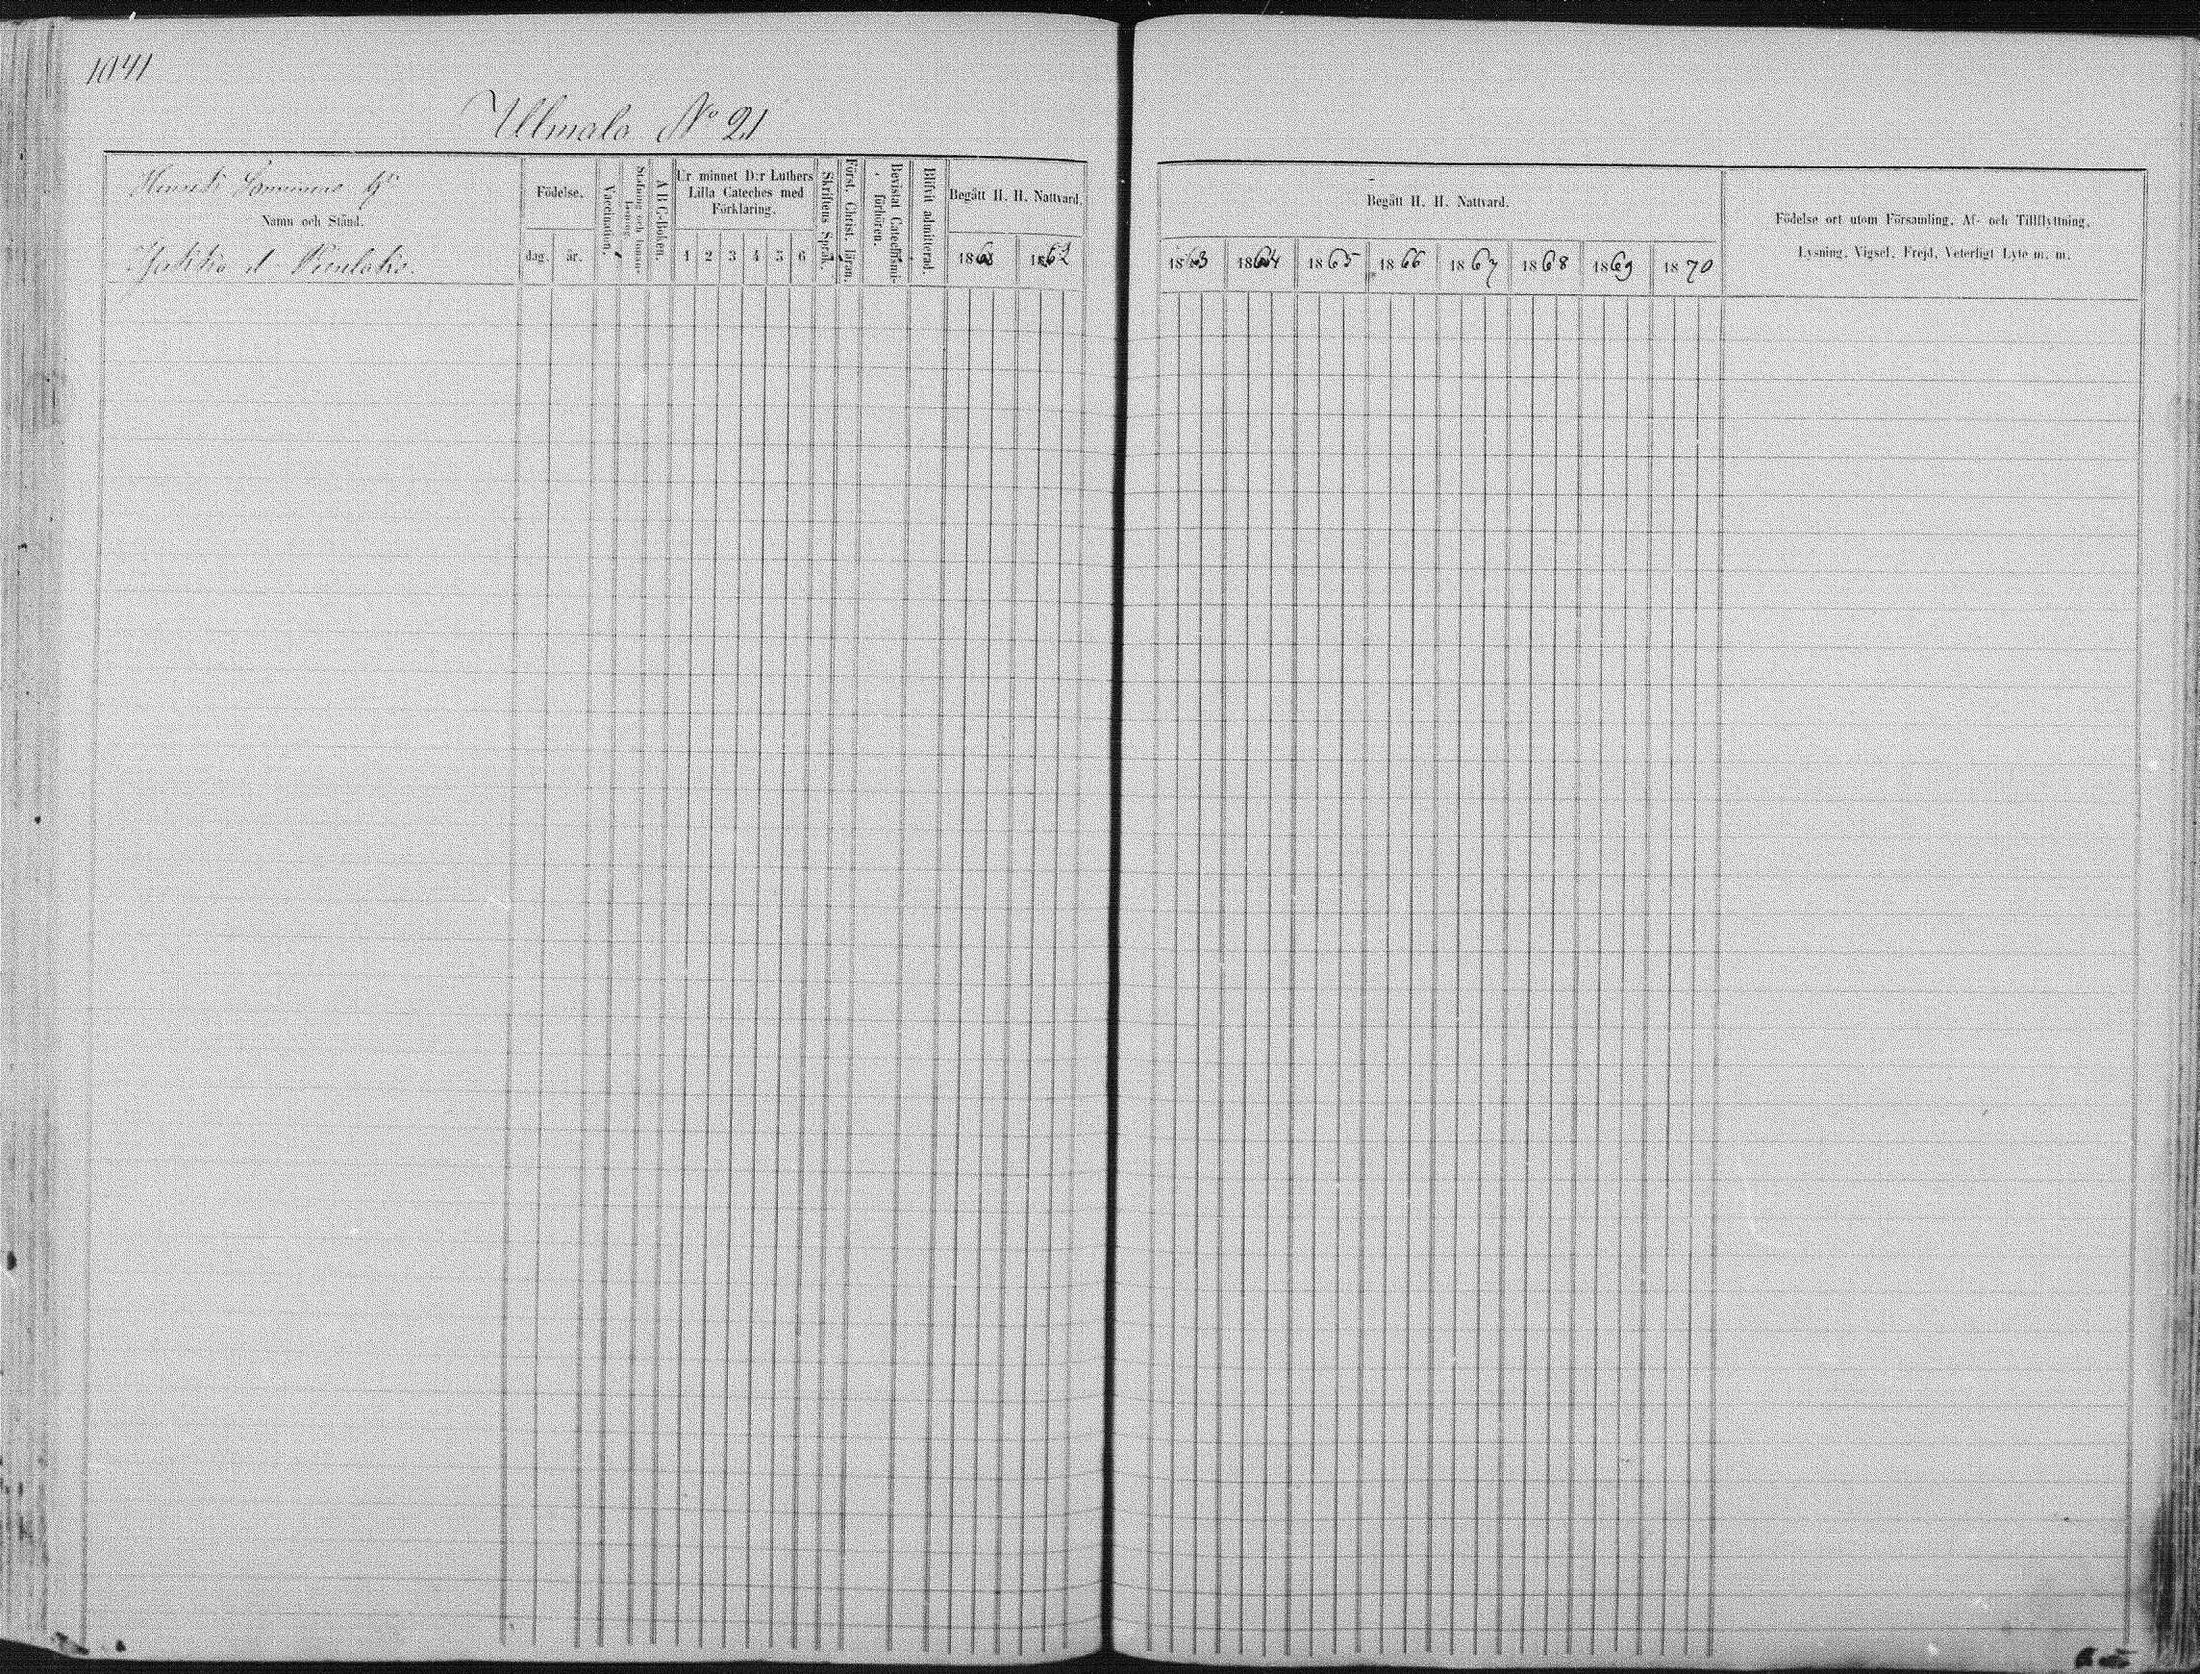 1041
Ullmala No 21
Namn och Stånd.
Födelse.
dag. år.
Vaccination.
Stafning och innanläsning.
A B C-Boken.
Ur minnet D:r Luthers
Lilla Cateches med
Förklaring.
1 2 3 4 5 6
Skriftens Språk.
Först. Christ. läran.
Bevistat Catechismi-
förhören.
Blifvit admitterad.
Begått H. H. Nattvard.
1861 1862
Begått H. H. Nattvard.
1863 1864 1865 1866 1867 1868 1869 1870
Födelse ort utom Församling, Af- och Tillflyttning,
Lysning, Vigsel, Frejd, Veterligt Lyte m. m.